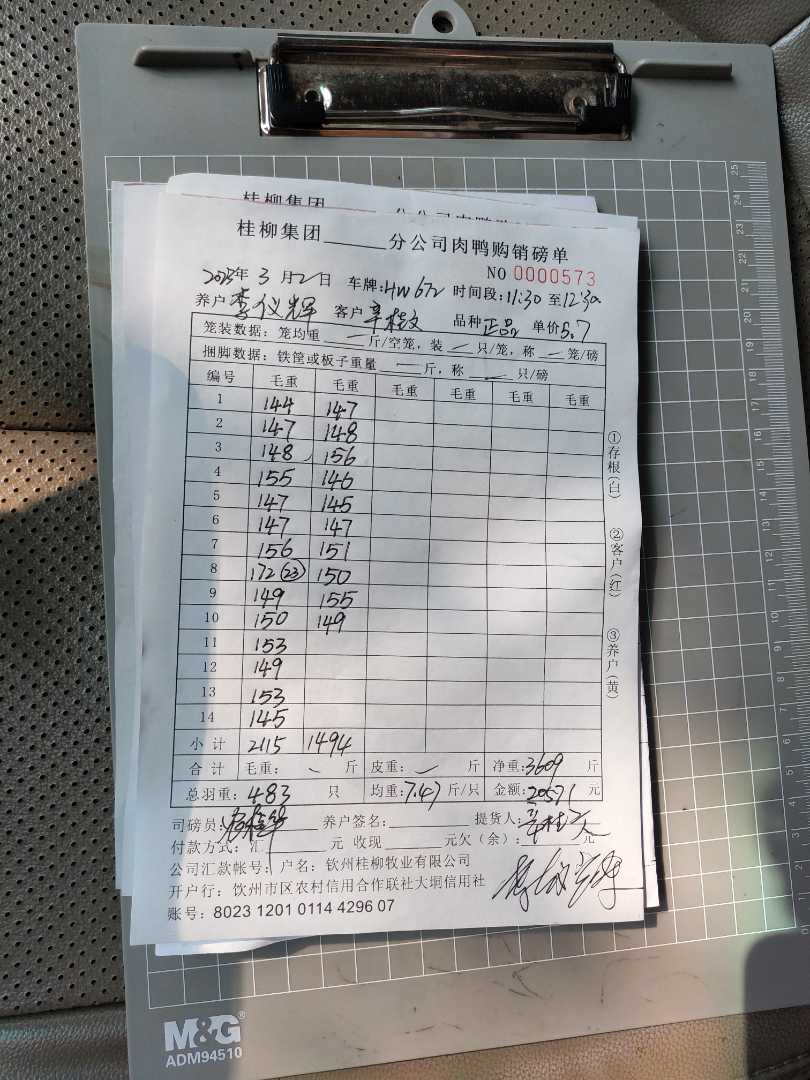 桂柳集团
分公司肉鸭购销
桂柳集团______分公司肉鸭购销磅单
NO 0000573
2023年 3月21日 车牌:HW672 时间段:11:30至12:30
养户 李仪辉 客户 辛桂文 品种 正品 单价5.7
笼装数据:笼均重 — 斤/空笼,装 — 只/笼,称 — 笼/磅
捆脚数据:铁筐或板子重量 — 斤,称 — 只/磅
编号 毛重 毛重 毛重 毛重 毛重 毛重
1 144 147
2 147 148
3 148 156
4 155 146
5 147 145
6 147 147
7 156 151
8 172(23) 150
9 149 155
10 150 149
11 153
12 149
13 153
14 145
小计 2115 1494
合计 毛重: 斤 皮重: 斤 净重:3609 斤
总羽重:483 只 均重:7.47斤/只 金额:20571元
司磅员: 养户签名:________ 提货人:
付款方式:汇________元 收现________元欠(余):________元
公司汇款帐号:户名:钦州桂柳牧业有限公司
开户行:饮州市区农村信用合作联社大垌信用社
账号:8023 1201 0114 4296 07
①存根(白) ②客户(红) ③养户(黄)
M&G®
ADM94510